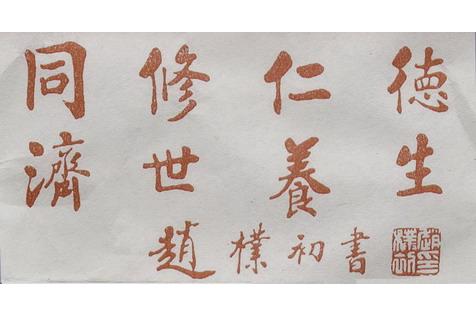 同修仁德
濟世養生
趙樸初書
趙樸初印